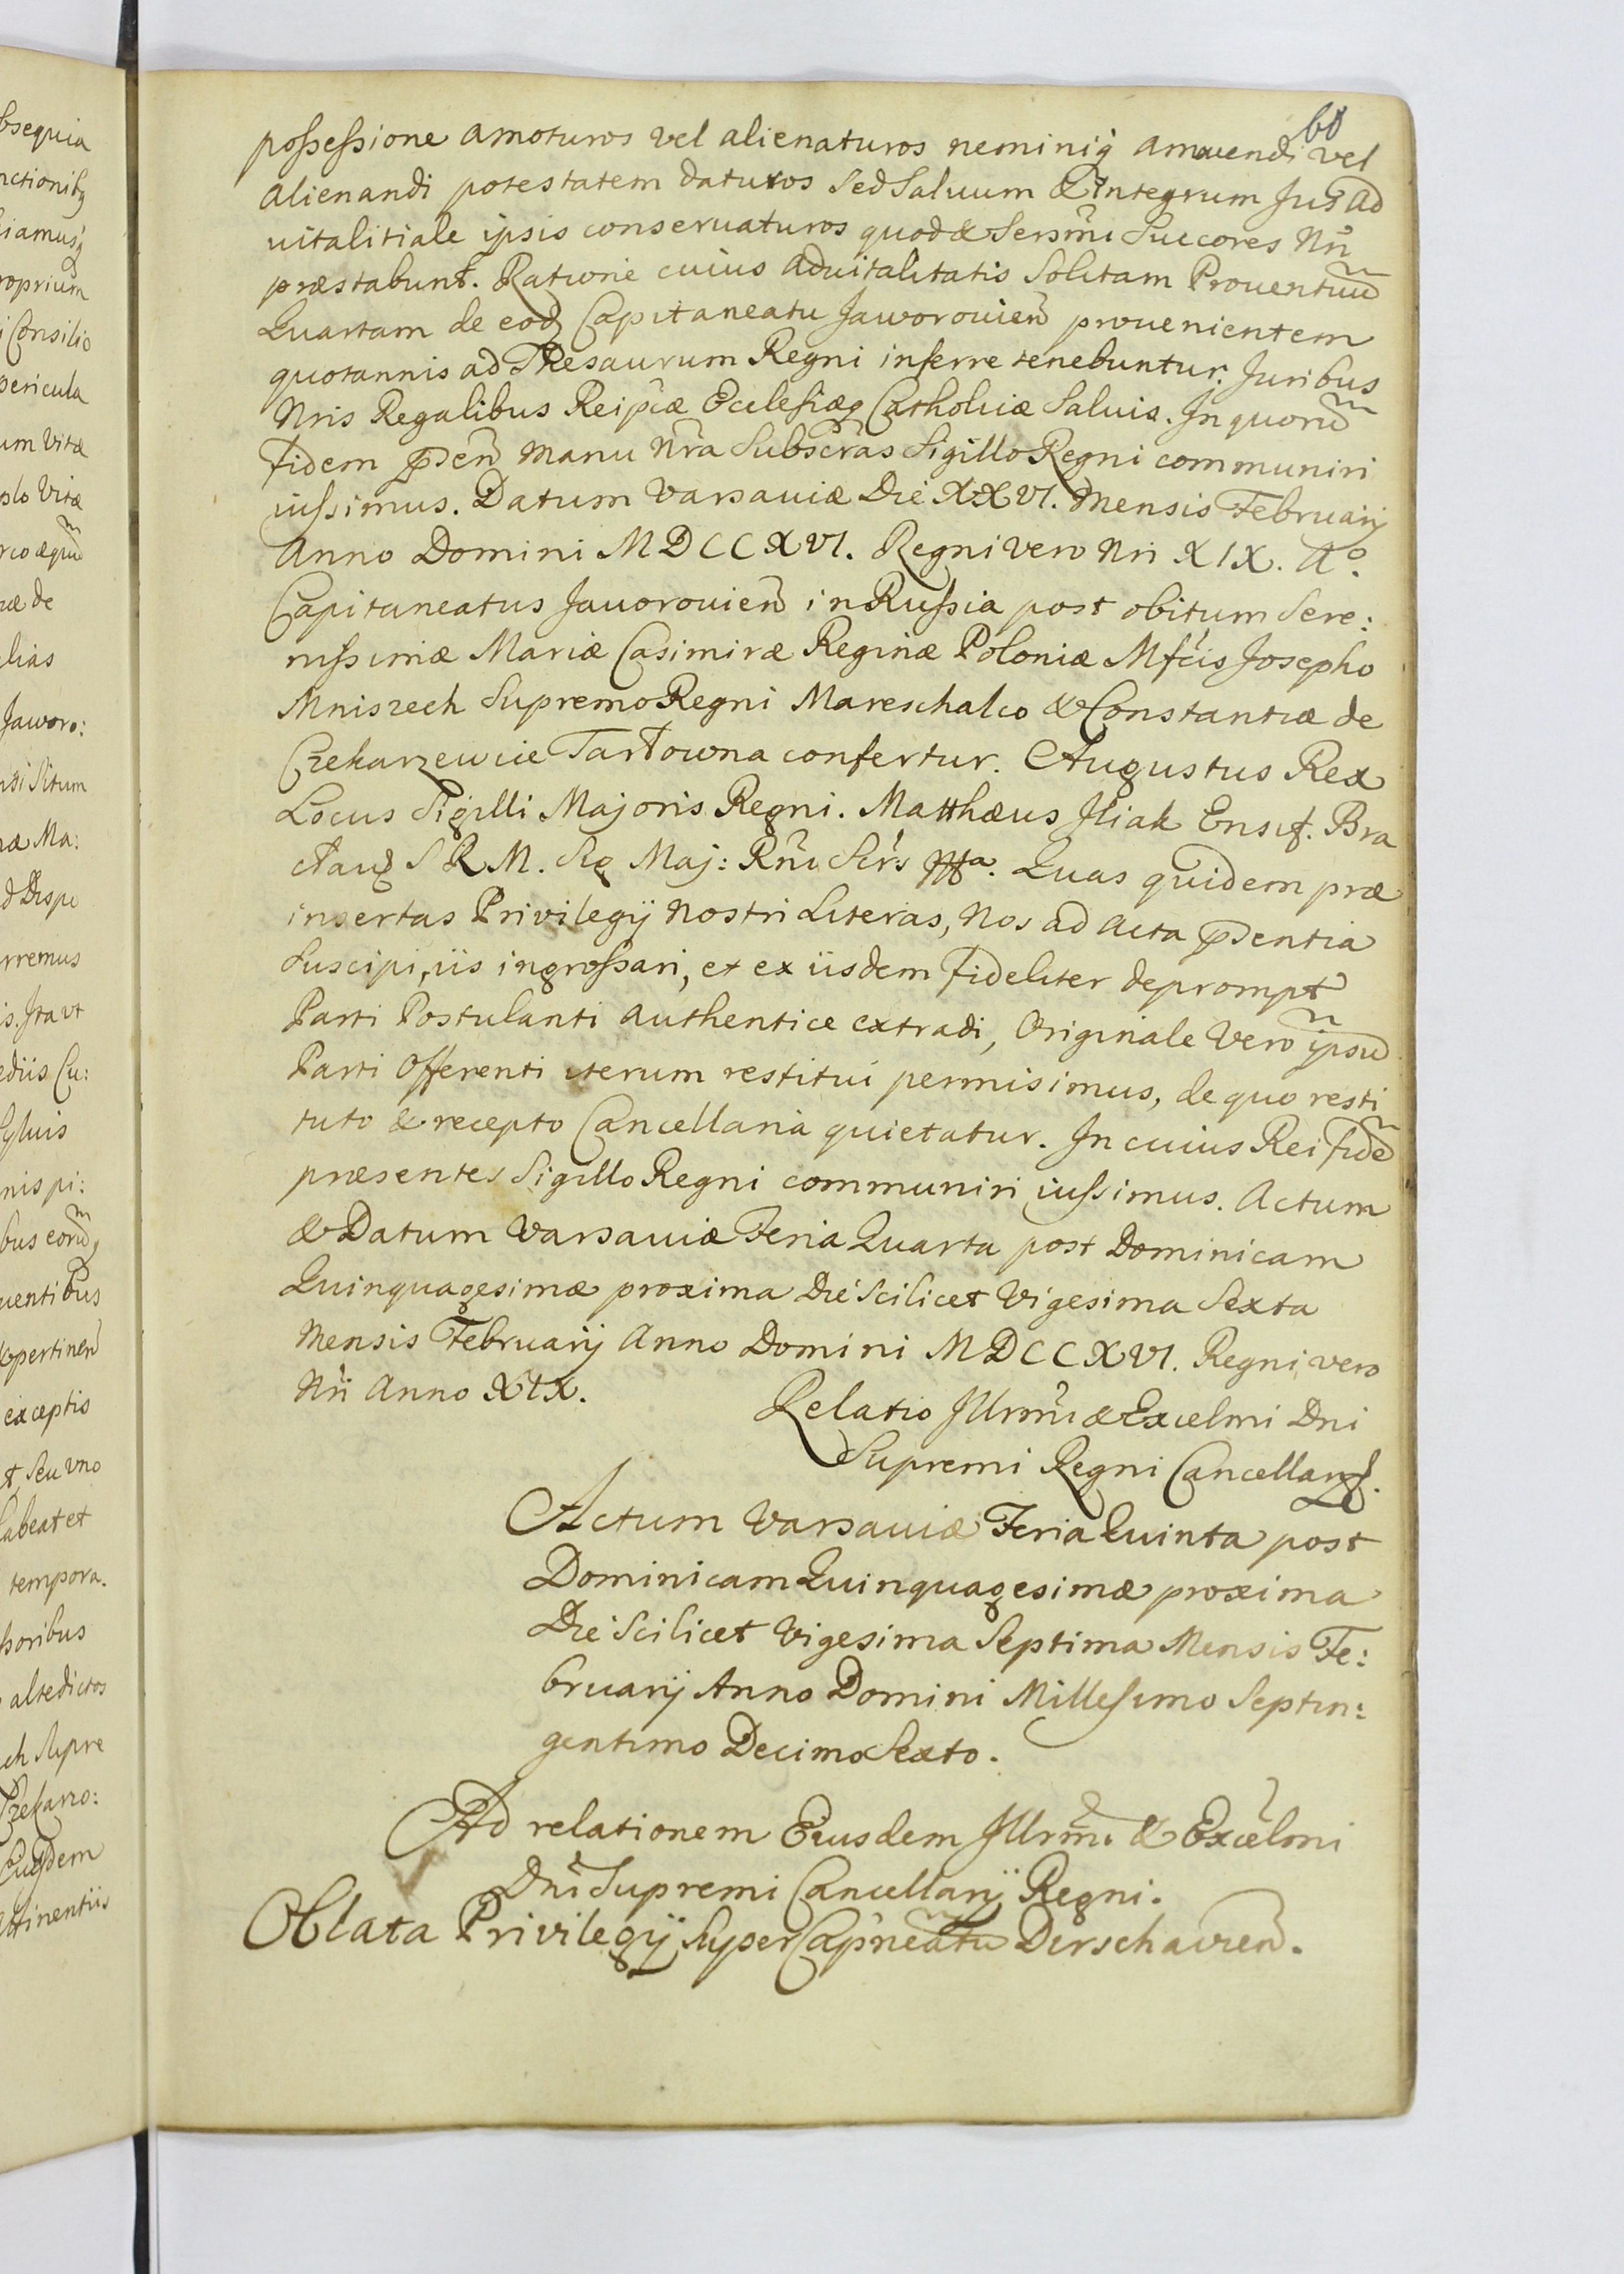 60
possessione amoturos vel alienaturos neminiq́ amouendi vel
alienandi potestatem daturos Sed Saluum & Integrum Jus ad
uitalitiale ipsis conseruaturos quod & Sersm̃i Succores Nri
præstabunt. Ratione cuius aduitalitatis Solitam Prouentuũ
Quartam de eodq Capitaneatu Jaworouieñ prouenientem
quotannis ad Thesaurum Regni inferre tenebuntur. Juribus
Nris Regalibus Reip̃cæ Ecclesiæq Catholicæ Saluis. In quorũ
fidem p̃sen̄ manu Nr̃a Subscr̃as Sigillo Regni communiri
iussimus. Datum Varsauiæ Die XXVI. Mensis Februarij
Anno Domini MDCCXVI. Regni vero Nri XIX. Aº.
Capitaneatus Jauorouien̄ in Russia post obitum Sere:
nissimæ Mariæ Casimiræ Reginæ Poloniæ Mfcis Josepho
Mniszech Supremo Regni Mareschalco & Constantiæ de
Czekarzewcie Tarłowna confertur. Augustus Rex
Locus Sigilli Majoris Regni. Matthæus Iliak Ensif. Bra
cłauq S R M. Sig Maj: Rñi Scr̃s mp̃a. Quas quidem præ
insertas Privilegij nostri Literas, Nos ad Acta p̃sentia
Suscipi, iis ingrossari, et ex iisdem fideliter deprompt
Parti Postulanti authentice extradi, Originale Vero ipsũ
Parti Offerenti iterum restitui permisimus, de quo resti
tuto & recepto Cancellaria quietatur. In cuius Rei fidẽ
præsentes Sigillo Regni communiri iussimus. Actum
& Datum Varsauiæ Feria Quarta post Dominicam
Quinquagesimæ proxima Die Scilicet Vigesima Sexta
Mensis Februarij Anno Domini MDCCXVI. Regni vero
Nri Anno XIX.
Relatio Jllrm̃i & Excelmi Dni
Supremi Regni Cancellarij.
Actum Varsauiæ Feria Quinta post
Dominicam Quinquagesimæ proxima
Die Scilicet Vigesima Septima Mensis Fe:
bruarij Anno Domini Millesimo Septin:
gentimo Decimo Sexto.
Ad relationem Eiusdem Jllrm̃i & Excelmi
Dñi Supremi Cancellarij Regni.
Oblata Privilegij Super Cap̃neatu Dirschauien̄.